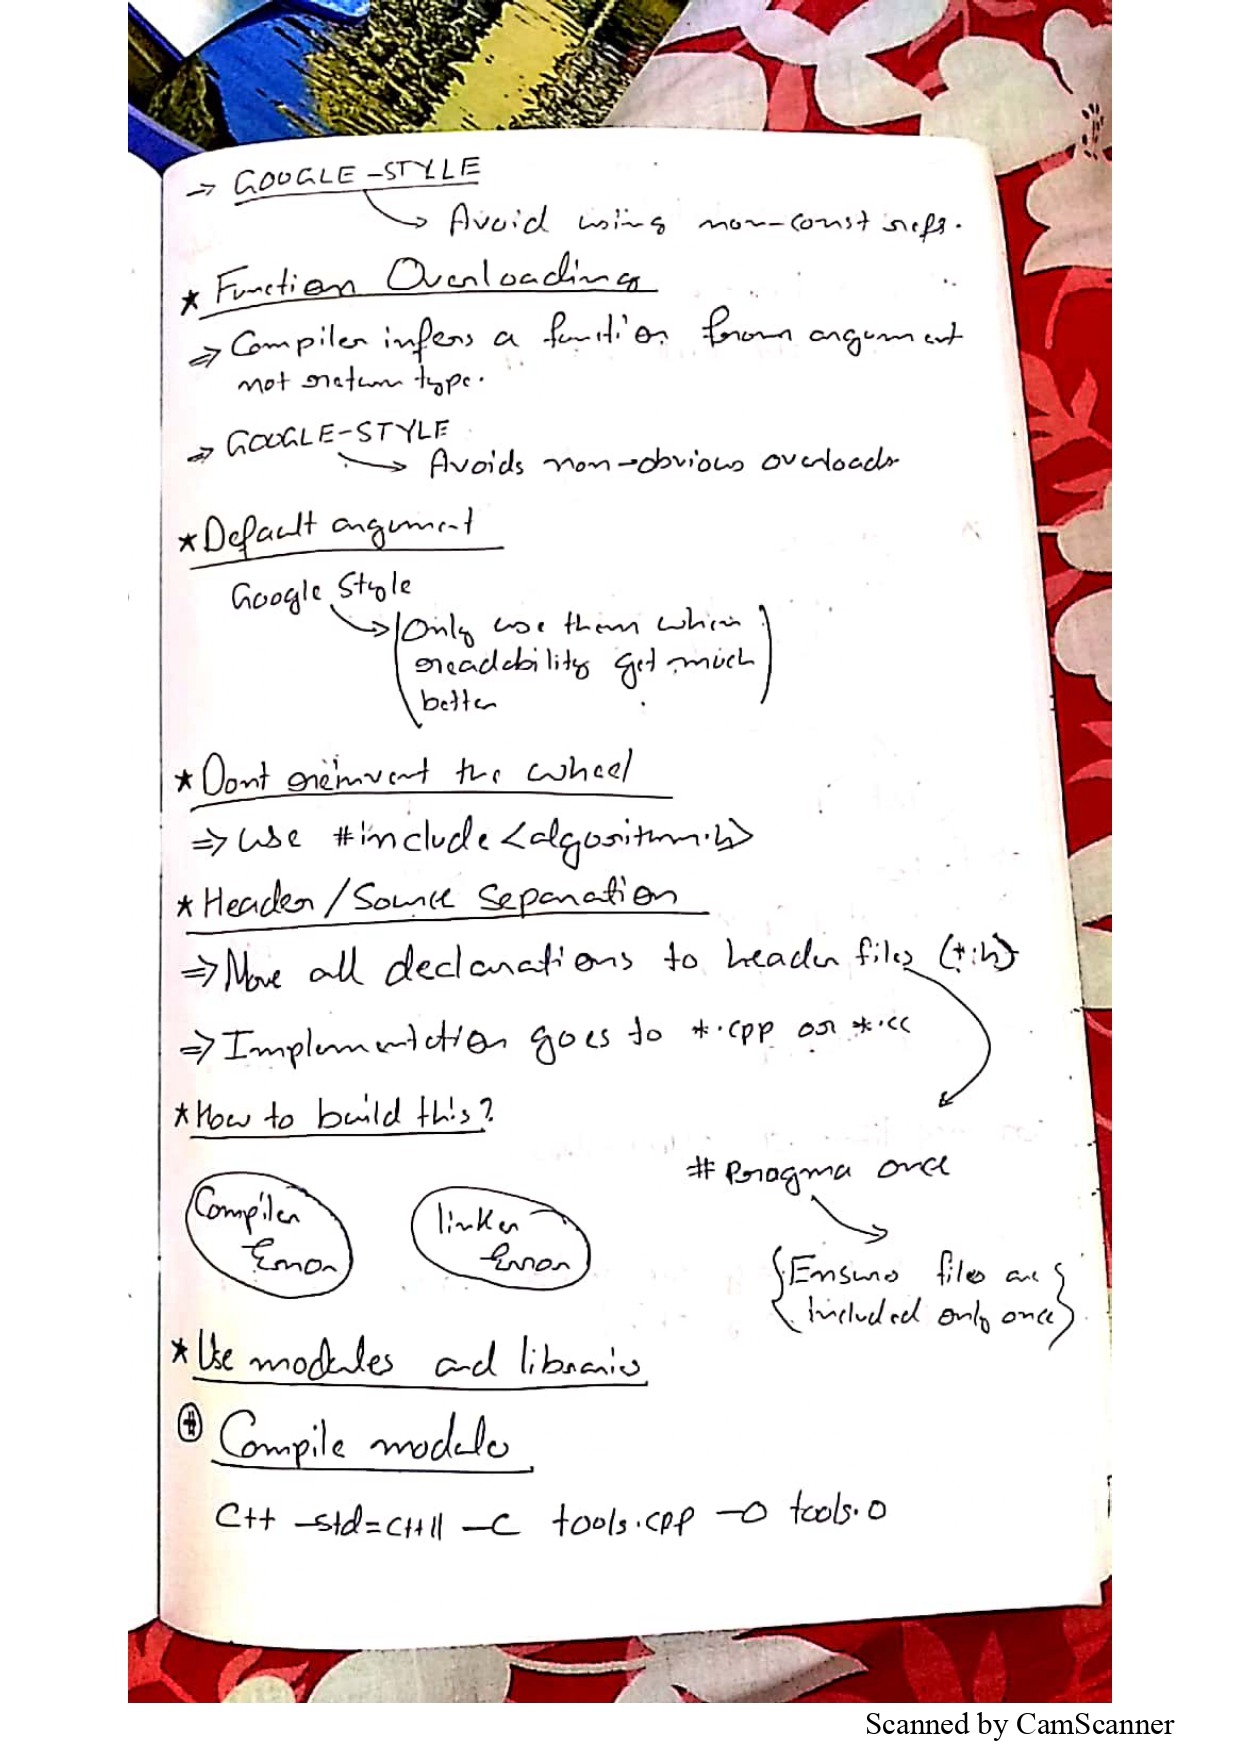 → GOOGLE-STYLE
→ Avoid using non-const refs.
* Function Overloading
⇒ Compiler infers a function from argument
not return type.
⇒ GOOGLE-STYLE
→ Avoids non-obvious overloads
* Default argument
Google Style
→ (Only use them when
readability get much
better)
* Dont reinvent the wheel
⇒ Use #include <algorithm.h>
* Header/Source Separation
⇒ Move all declarations to header files (*.h)
⇒ Implementation goes to *.cpp or *.cc
* How to build this?
# Pragma once
Compiler
Error
linker
Error
{Ensures files are
included only once}
* Use modules and libraries
# Compile modules
C++ -std=C++11 -C tools.cpp -O tools.O
Scanned by CamScanner